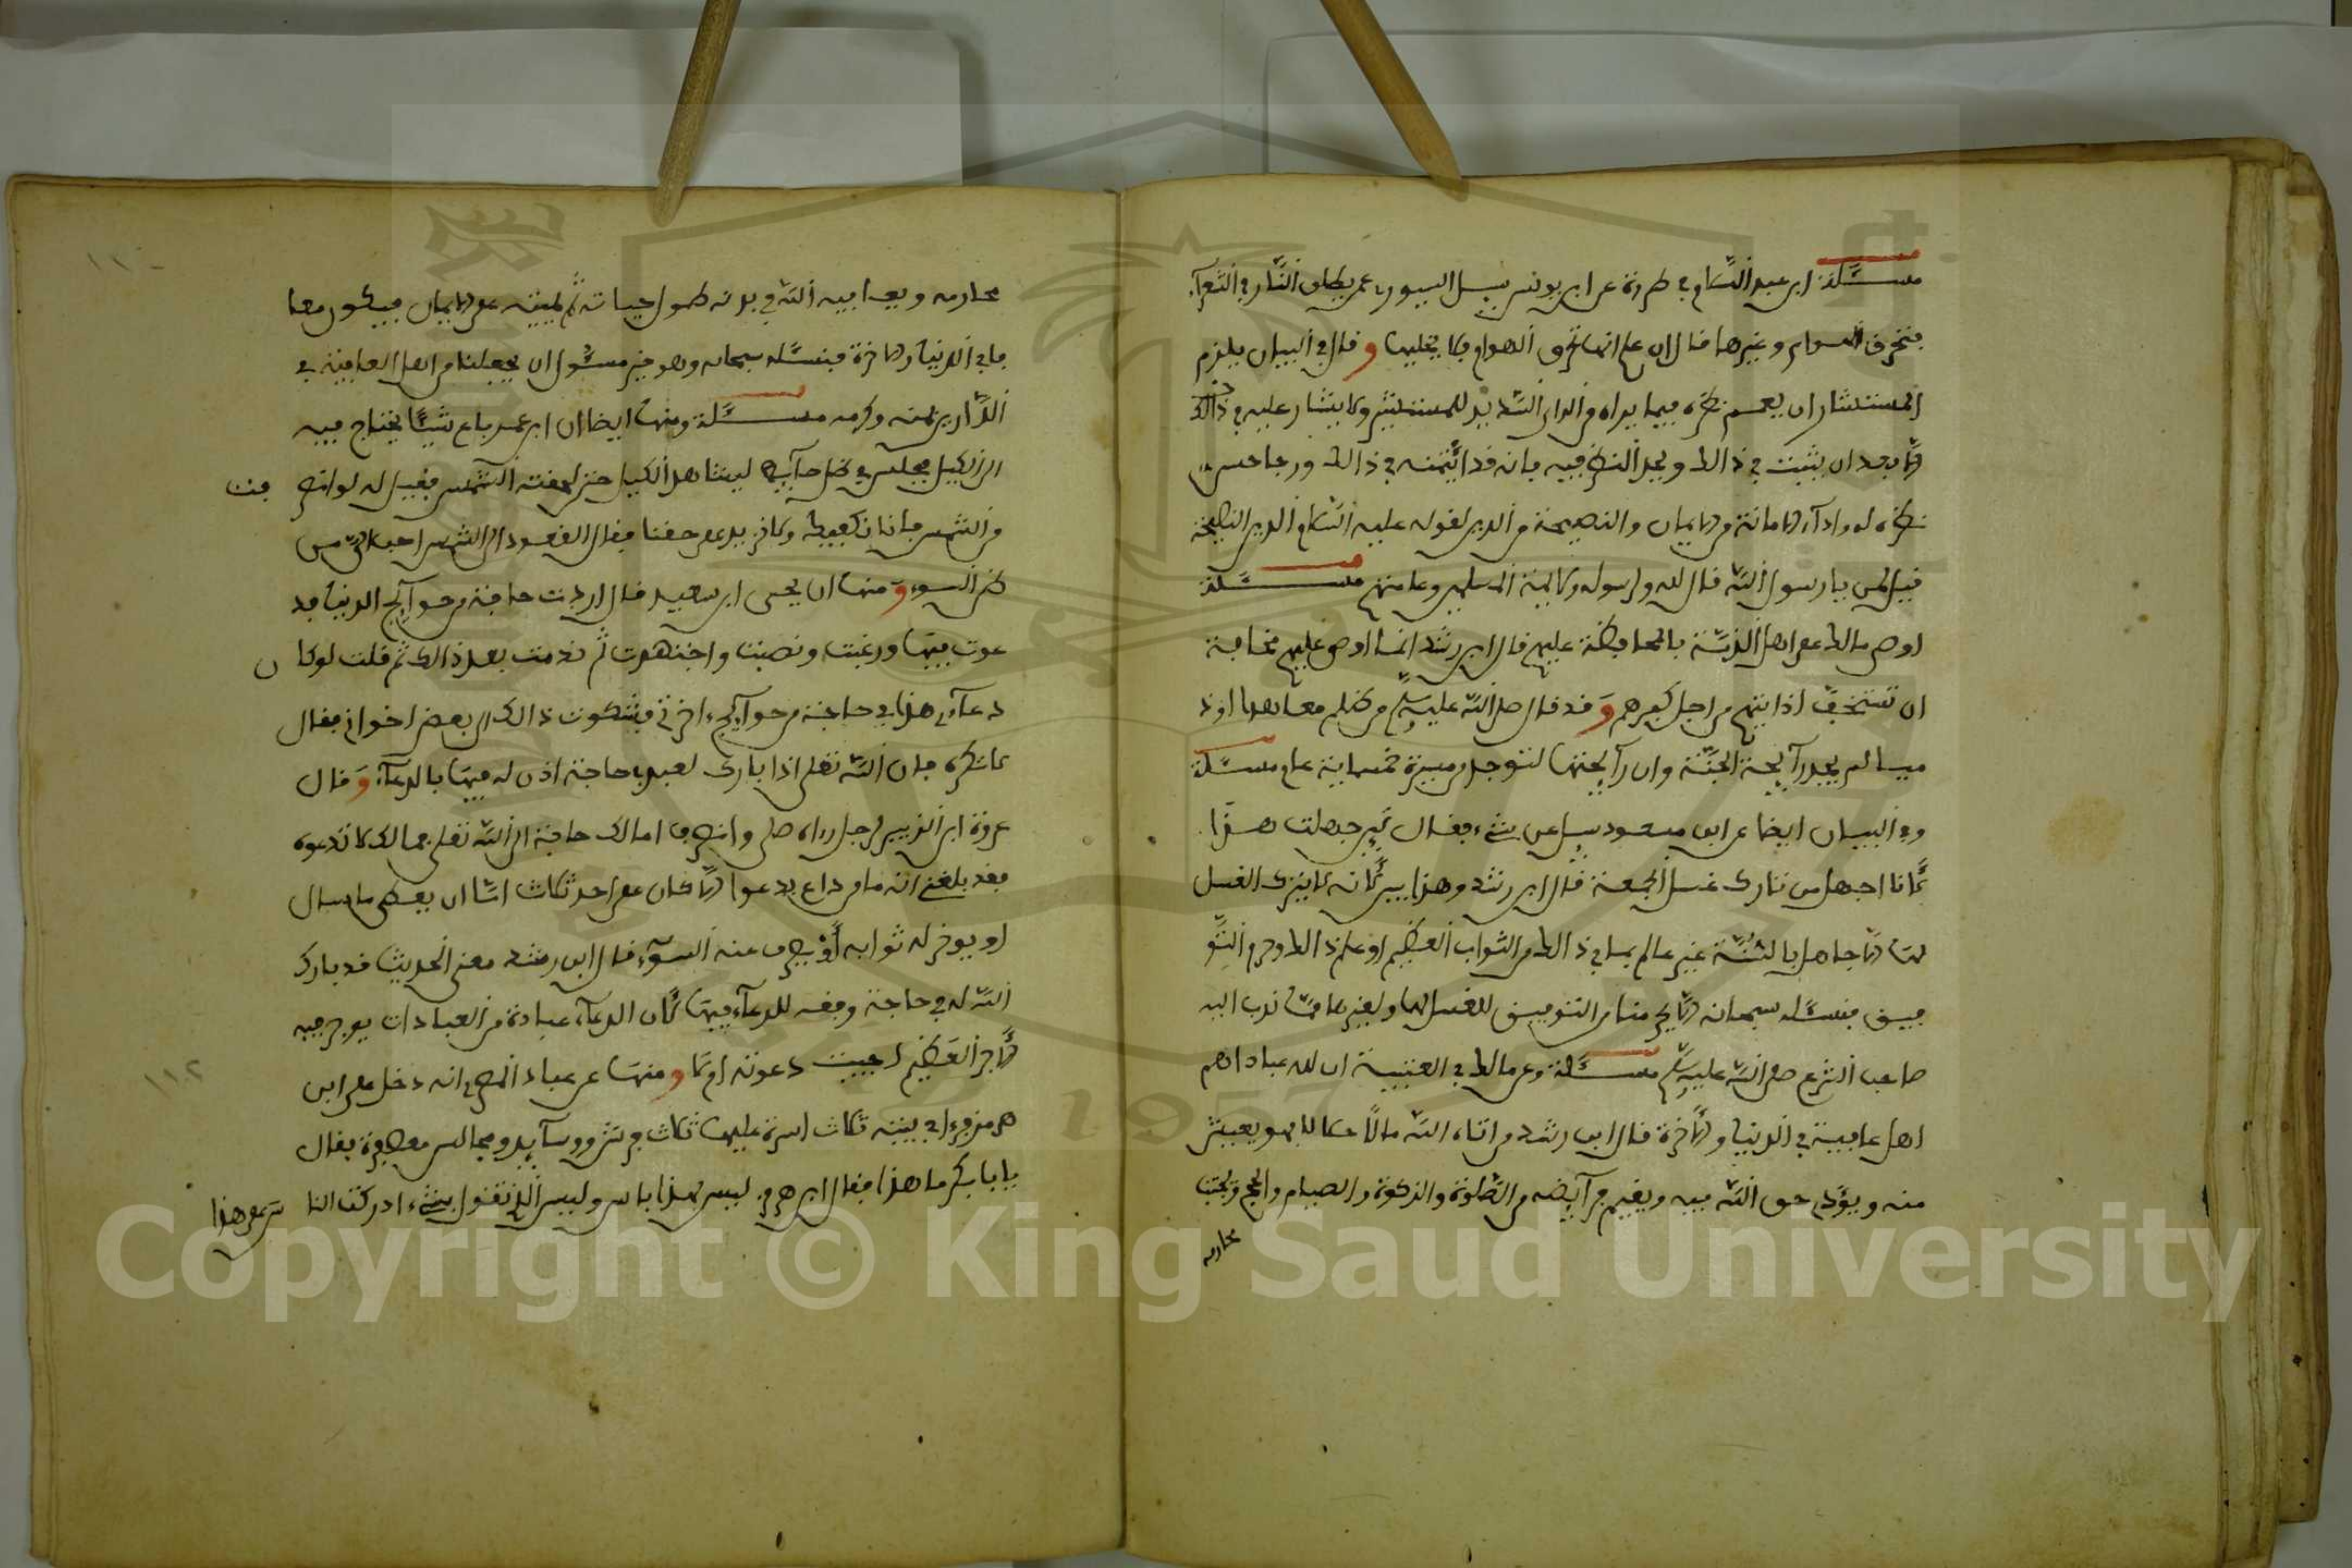 مسئلة ابن عبد السلام في طررة عن ابن يونس سئل السيوري عمن يطلق النار في الشعرآء
فتحرق الهوام وغيرها فقال ان علم انها تحرق الهوام فلا يخليها وقال في البيان يلزم
المستشار ان يعمم نظره فيما يراه من الراي السديد للمستشير ولا يشار عليه في ذالك
الا بعد ان يثبت في ذالك ويجيد النظر فيه فانه قد ائتمنه في ذالك ورجا حسن
نظره له واداء الامانة من الايمان والنصيحة من الدين لقوله عليه السلام الدين النصيحة
قيل لمن يا رسول الله قال لله ولرسوله ولائمة المسلمين وعامتهم مسئلة
اوصى مالك على اهل الذمة بالمحافظة عليهم قال ابن رشد انما اوصى عليهم مخافة
ان تستخف اذايتهم من اجل كفرهم وقد قال صلى الله عليه وسلم من ظلم معاهدا او ذ
ميا لم يجد رآئحة الجنة وان رآئحتها لتوجد من مسيرة خمسماية عام مسئلة
وفي البيان ايضا عن ابن مسعود سئل عن شيء فقال لئن جهلت هذا
لانا اجهل من تارك غسل الجمعة قال ابن رشد وهذا بين لانه لا يترك الغسل
لها الا جاهل بالسنة غير عالم بما في ذالك من الثواب العظيم او علم ذالك وحرم التو
فيق فنسئله سبحانه الا يحرمنا من التوفيق للغسل لها ولغيرها مما ندب اليه
صاحب الشرع صلى الله عليه وسلم مسئلة وعن مالك في العتبية ان لله عبادا هم
اهل عافية في الدنيا والاخرة قال ابن رشد من اتاه الله مالا حلالا فهو يعيش
منه ويؤدي حق الله فيه ويقيم فرآئضه من الصلوة والزكوة والصيام والحج ويجتنب
محارمه
محارمه ويعافيه الله في بدنه طول حياته ثم يميته على الايمان فيكون معا
فا في الدنيا والاخرة فنسئله سبحانه وهو خير مسئول ان يجعلنا من اهل العافية في
الدارين بمنه وكرمه مسئلة ومنها ايضا ان ابن عمر باع شيئا يحتاج فيه
الى الكيل فجلس في ظل حآئط ليشاهد الكيل حتى لحقته الشمس فقيل له لو انصرفت
من الشمس فانا نكفيك ولا نزيد على حقنا فقال القعود الى الشمس احب الي من
ظن السوء ومنها ان يحيى ابن سعيد قال اردت حاجة من حوآئج الدنيا فد
عوت فيها ورغبت ونصبت واجتهدت ثم ندمت بعد ذالك ثم قلت لو كان
دعآئي هذا في حاجة من حوآئج اخرتي فشكوت ذالك الى بعض اخواني فقال
لا تكره فان الله تعلى اذا بارك لعبده في حاجة اذن له فيها بالدعآء وقال
عروة ابن الزبير لرجل رءاه صلى وانصرف اما لك حاجة الى الله تعلى فما لك لا تدعوه
فقد بلغني انه ما من داع يدعوا الا كان على احد ثلاث اما ان يعطى ما سال
او يوخر له ثوابه او يصرف عنه السوء قال ابن رشد معنى الحديث قد بارك
الله له في حاجة وفقه للدعآء فيها لان الدعآء عبادة من العبادات يوجر فيه
الاجر العظيم اجيبت دعوته او لا ومنها عن عباد المصري انه دخل على ابن
هرمز فرءا في بيته ثلاث اسرة عليها ثلاث فرش ووسآئد ومجالس معصفرة فقال
يا ابا بكر ما هذا فقال ابن هرمز ليس بهذا باس وليس الذي تقول بشيء ادركت الناس على هذا
١١٠
١١٢
1957
Copyright © King Saud University